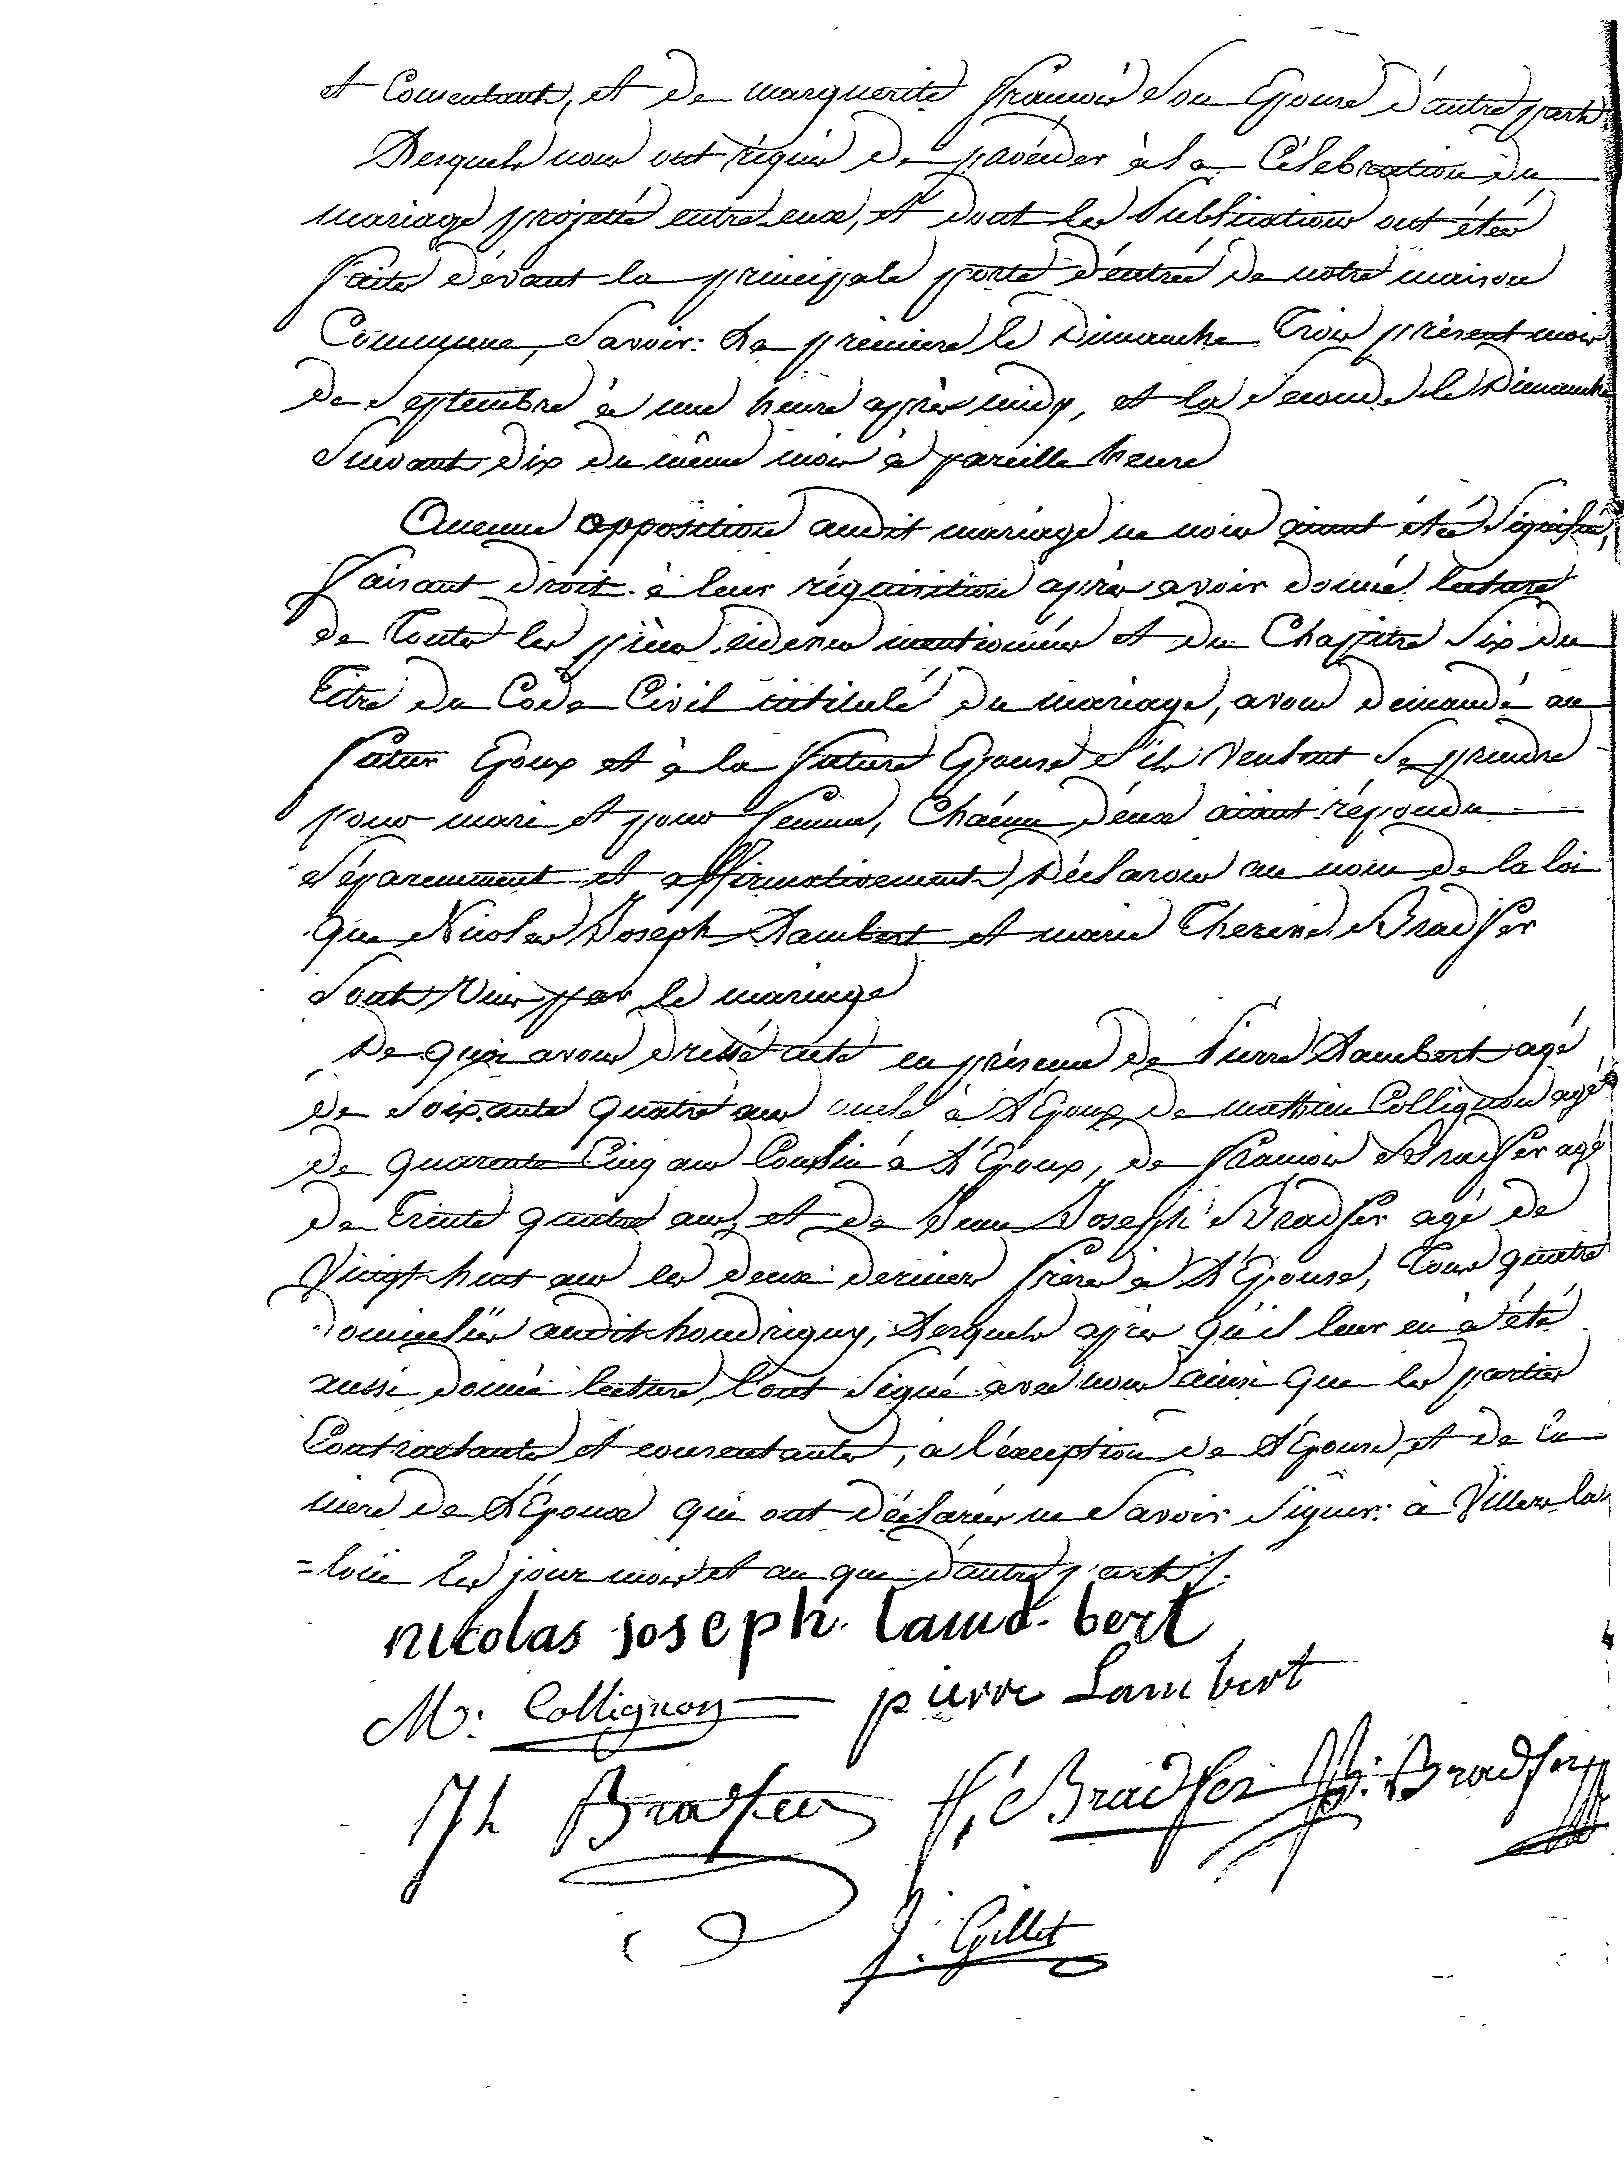 et Consentant, et de marguerite françois son Epouse d'autre part
Lesquels nous ont réquis de procéder à la Célébration du
mariage projetté entre eux, et dont les Publications ont étés
faites dévant la principale porte d'entrée de notre maison
Commune, Savoir: La premiere le Dimanche Trois présent mois
de Septembre à une heure après midy, et la Seconde le Dimanche
Suivant dix du même mois à pareille heure
Aucune opposition audit mariage ne nous aiant été Signifié,
faisant droit à leur réquisition après avoir donné lecture
de Toutes les pièces cidessus mentionnées et du Chapitre Six du
Titre du Code Civil intitulé du mariage, avons demandé au
futur Epoux et à la future Epouse s'ils veulent Se prendre
pour mari et pour femme, Chácun d'eux aiant répondu
séparemment et affirmativement, Déclarons au nom de la loi
que Nicolas Joseph Lambert et marie Therese Bradfer
Sont Unis par le mariage
De quoi avons dressé acte en présence de Pierre Lambert agé
de Soixante quatre ans oncle à L'Epoux, de mathieu Collignon agé
de quarante Cinq ans Cousin à L'Epoux, de françois Bradfer agé
de Trente quatre ans, et de Jean Joseph Bradfer agé de
Vingt huit ans les deux derniers frères à L'Epouse, Tous quatre
domiciliés audit houdrigny, Lesquels après qu'il leur en à été
aussi donné lecture, l'ont Signé avec nous ainsi que les parties
Contractantes et consentantes, à l'éxception de L'Epouse, et de la
mere de L'Epoux qui ont déclarés ne Savoir Signer: à Villers la
=loüe les jour mois et an que d'autre part
nicolas joseph lamd-bert
M: Collignon pierre Lambert
Bradfer f, Bradfer Bradfer
J: Gillet